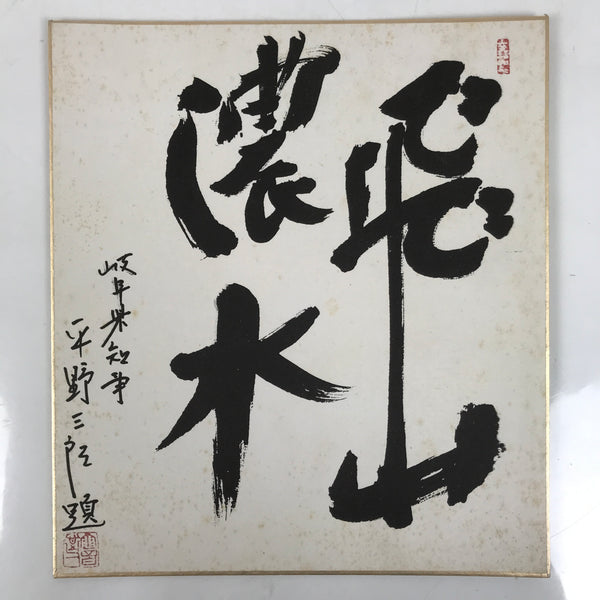 飛山
濃水
岐阜県知事
平野三郎題